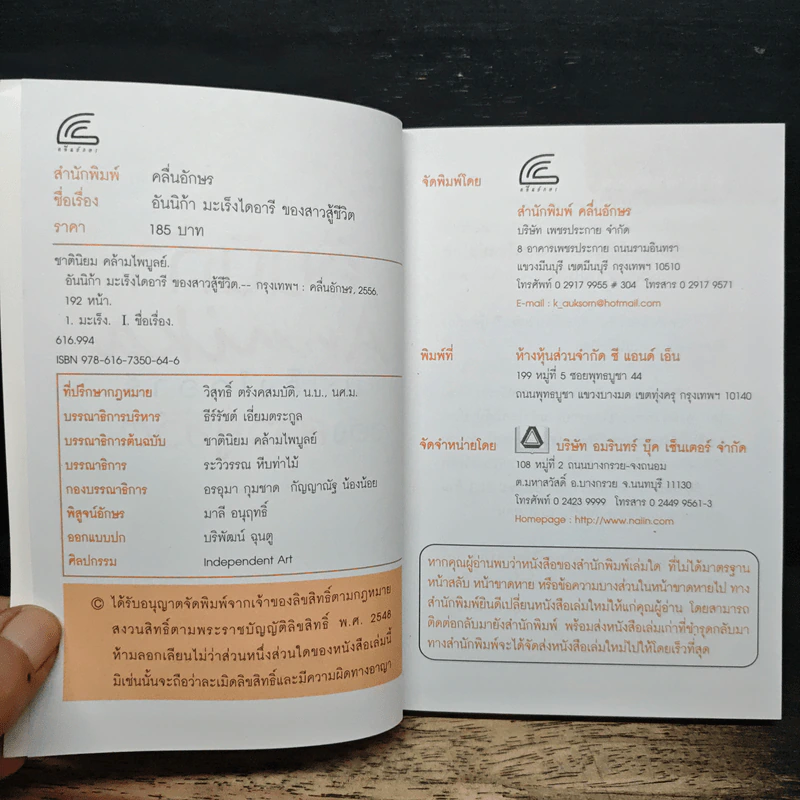 คลื่นอักษร
สำนักพิมพ์ คลื่นอักษร
ชื่อเรื่อง อันนิก้า มะเร็งไดอารี ของสาวสู้ชีวิต
ราคา 185 บาท
ชาตินิยม คล้ามไพบูลย์.
อันนิก้า มะเร็งไดอารี ของสาวสู้ชีวิต.-- กรุงเทพฯ : คลื่นอักษร, 2556.
192 หน้า.
1. มะเร็ง. I. ชื่อเรื่อง.
616.994
ISBN 978-616-7350-64-6
ที่ปรึกษากฎหมาย วิสุทธิ์ ตรังคสมบัติ, น.บ., นศ.ม.
บรรณาธิการบริหาร ธีร์รัชต์ เอี่ยมตระกูล
บรรณาธิการต้นฉบับ ชาตินิยม คล้ามไพบูลย์
บรรณาธิการ ระวิวรรณ หีบท่าไม้
กองบรรณาธิการ อรอุมา กุมชาด กัญญาณัฐ น้องน้อย
พิสูจน์อักษร มาลี อนุฤทธิ์
ออกแบบปก บริพัฒน์ ฉุนตู
ศิลปกรรม Independent Art
© ได้รับอนุญาตจัดพิมพ์จากเจ้าของลิขสิทธิ์ตามกฎหมาย
สงวนสิทธิ์ตามพระราชบัญญัติลิขสิทธิ์ พ.ศ. 2546
ห้ามลอกเลียนไม่ว่าส่วนหนึ่งส่วนใดของหนังสือเล่มนี้
มิเช่นนั้นจะถือว่าละเมิดลิขสิทธิ์และมีความผิดทางอาญา
จัดพิมพ์โดย
คลื่นอักษร
สำนักพิมพ์ คลื่นอักษร
บริษัท เพชรประกาย จำกัด
8 อาคารเพชรประกาย ถนนรามอินทรา
แขวงมีนบุรี เขตมีนบุรี กรุงเทพฯ 10510
โทรศัพท์ 0 2917 9955 # 304 โทรสาร 0 2917 9571
E-mail : k_auksorn@hotmail.com
พิมพ์ที่ ห้างหุ้นส่วนจำกัด ซี แอนด์ เอ็น
199 หมู่ที่ 5 ซอยพุทธบูชา 44
ถนนพุทธบูชา แขวงบางมด เขตทุ่งครุ กรุงเทพฯ 10140
จัดจำหน่ายโดย บริษัท อมรินทร์ บุ๊ค เซ็นเตอร์ จำกัด
108 หมู่ที่ 2 ถนนบางกรวย-จงถนอม
ต.มหาสวัสดิ์ อ.บางกรวย จ.นนทบุรี 11130
โทรศัพท์ 0 2423 9999 โทรสาร 0 2449 9561-3
Homepage : http://www.naiin.com
หากคุณผู้อ่านพบว่าหนังสือของสำนักพิมพ์เล่มใด ที่ไม่ได้มาตรฐาน
หน้าสลับ หน้าขาดหาย หรือข้อความบางส่วนในหน้าขาดหายไป ทาง
สำนักพิมพ์ยินดีเปลี่ยนหนังสือเล่มใหม่ให้แก่คุณผู้อ่าน โดยสามารถ
ติดต่อกลับมายังสำนักพิมพ์ พร้อมส่งหนังสือเล่มเก่าที่ชำรุดกลับมา
ทางสำนักพิมพ์จะได้จัดส่งหนังสือเล่มใหม่ไปให้โดยเร็วที่สุด